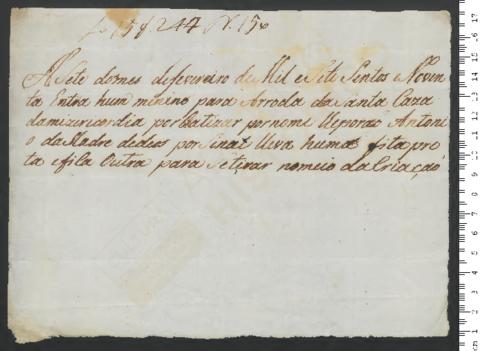 fo 15 f 244 N. 150
A Sete domes defevereiro de Mil e Sete Sentos e Noven
ta Entra hum minino para Arroda da Santa Caza
damizericordia por batizar por nome Antoni
o da Madre dedeos por Sinal Leva huma fita pre
ta efica Outra para Setirar nomeio da Criaçaõ